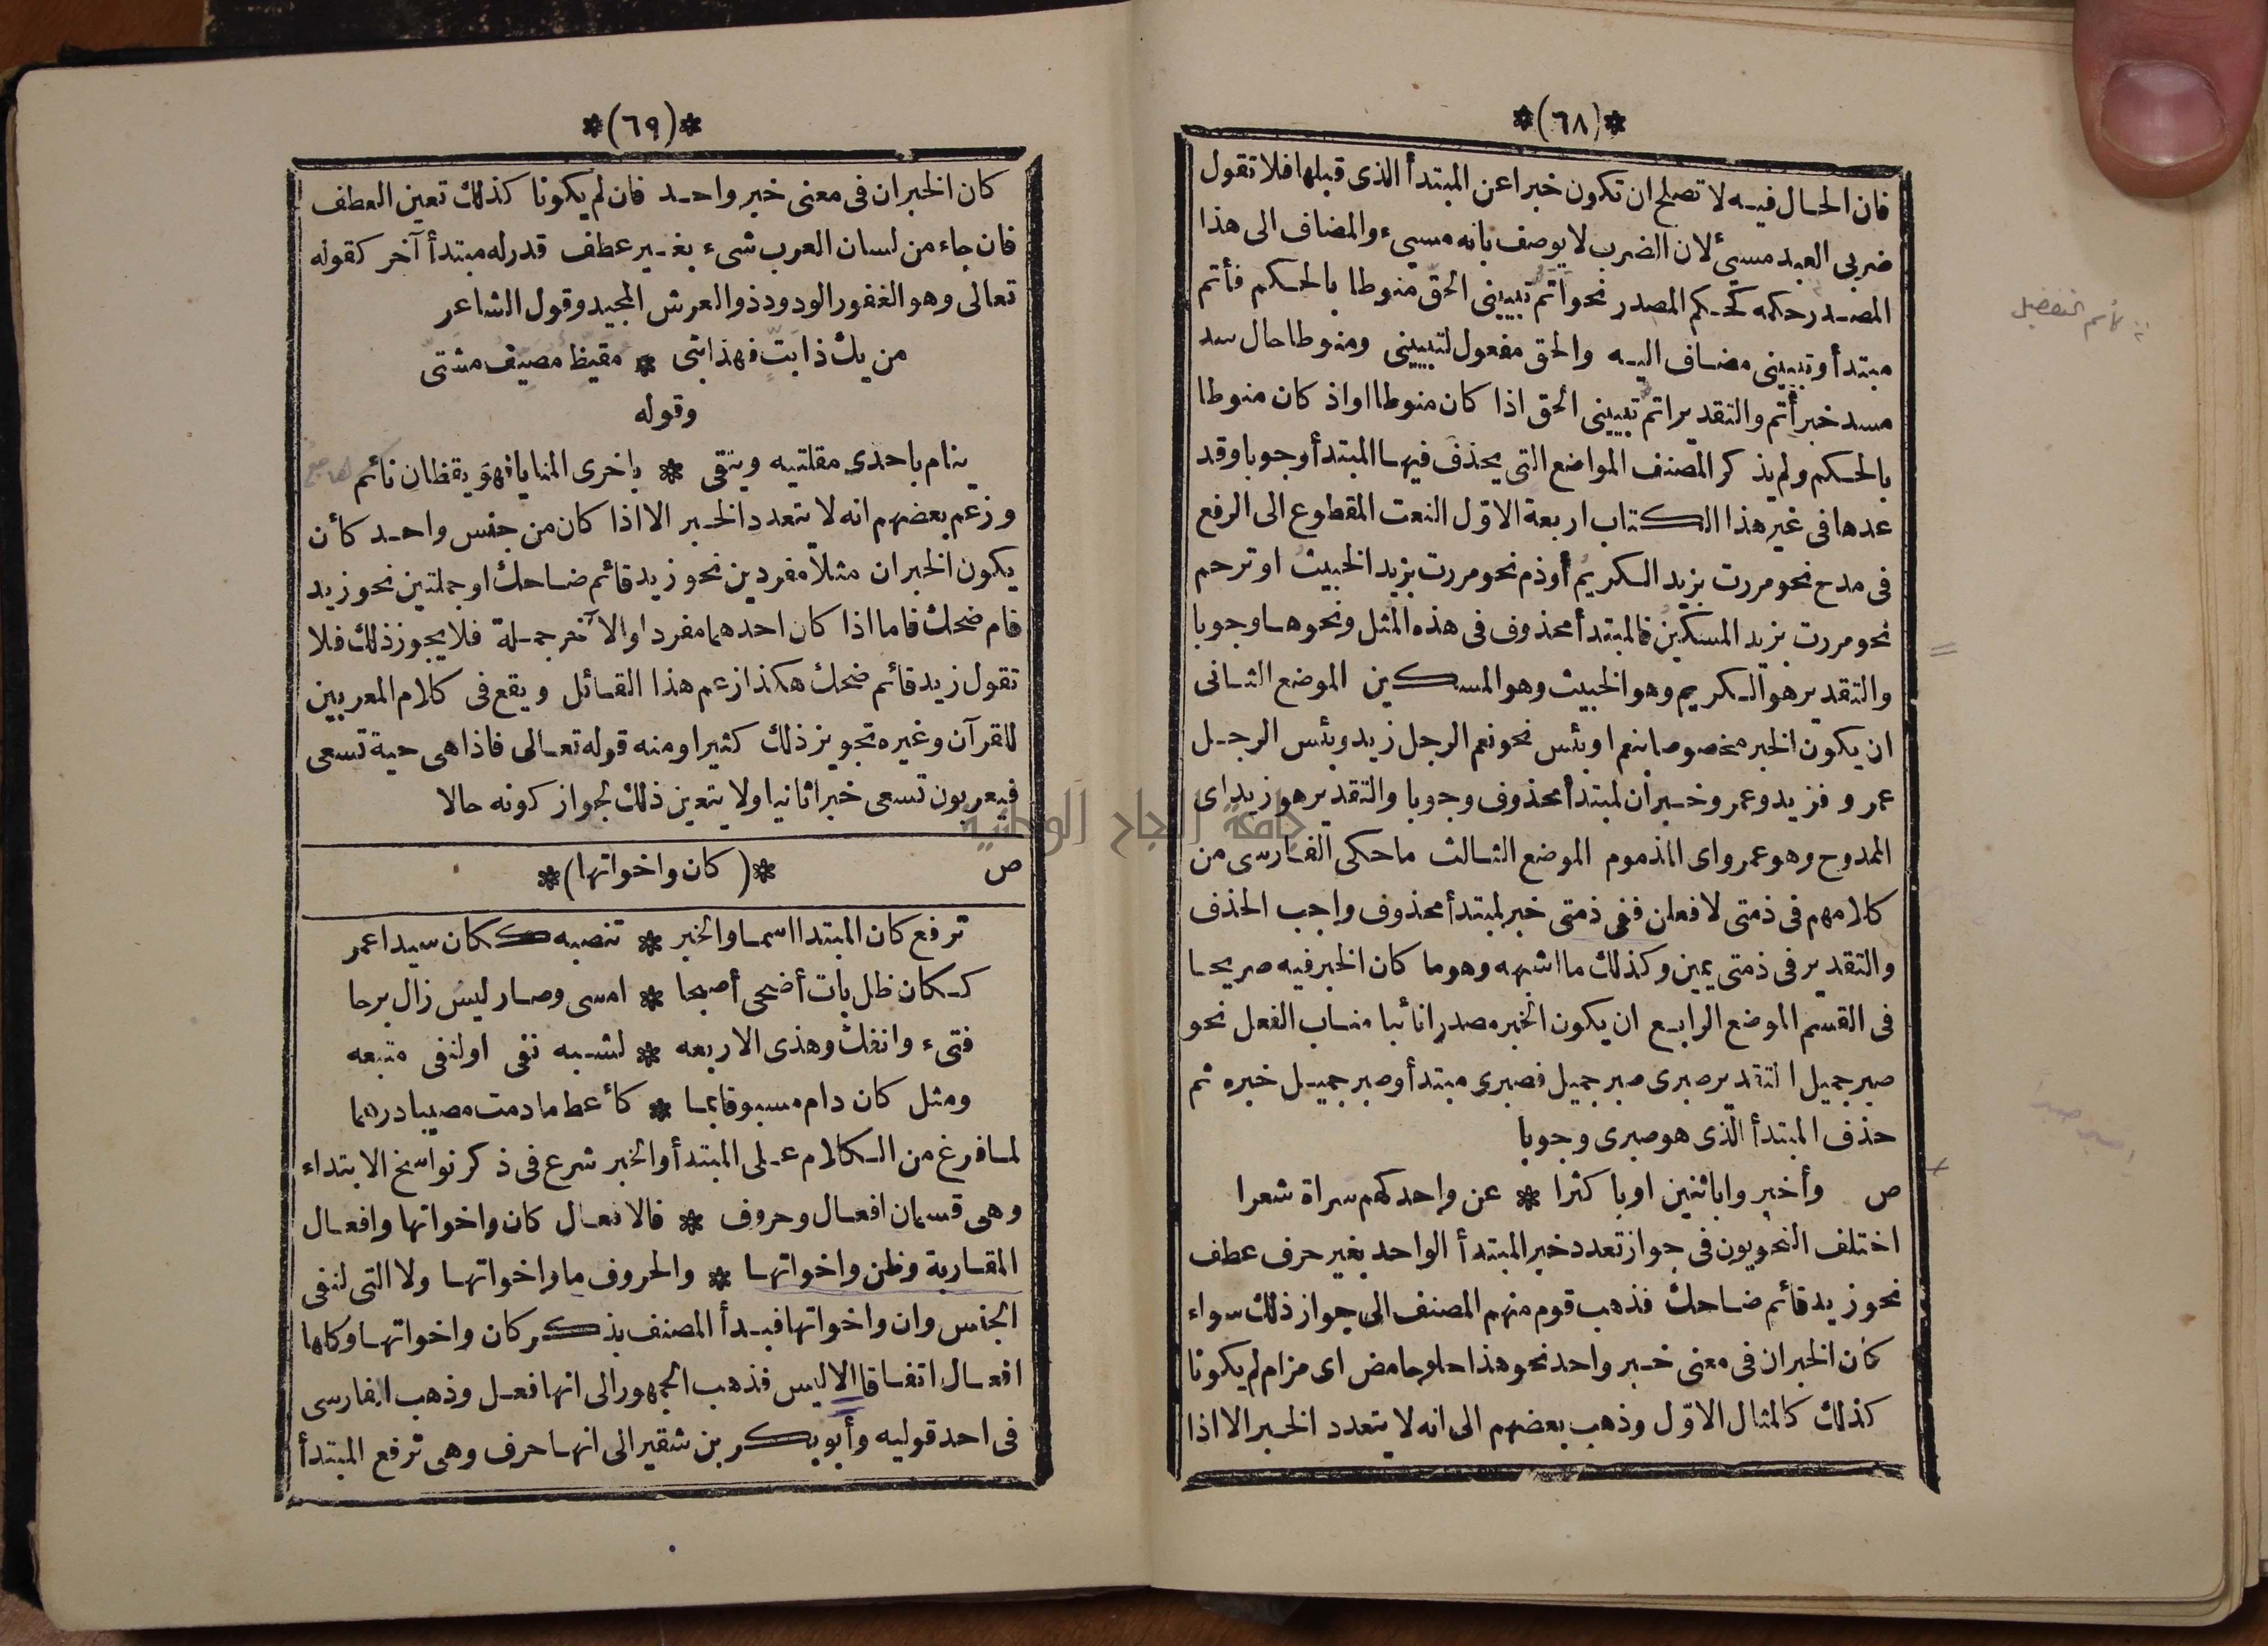 *(٦٨)*
فان الحال فيه لا تصلح ان تكون خبرا عن المبتدأ الذى قبلها فلا تقول
ضربى العبد مسئ لان الضرب لا يوصف بانه مسيء والمضاف الى هذا
المصدر حكمه كحكم المصدر نحو اتم تبيينى الحق منوطا بالحكم فأتم
مبتدأ وتبيينى مضاف اليه والحق مفعول لتبيينى ومنوطا حال سد
مسد خبر أتم والتقدير اتم تبيينى الحق اذا كان منوطا او اذ كان منوطا
بالحكم ولم يذكر المصنف المواضع التى يحذف فيها المبتدأ وجوبا وقد
عدها فى غير هذا الكتاب اربعة الاوّل النعت المقطوع الى الرفع
فى مدح نحو مررت بزيد الكريمُ أوذم نحو مررت بزيد الخبيثُ او ترحم
نحو مررت بزيد المسكينُ فالمبتدأ محذوف فى هذه المثل ونحوها وجوبا
والتقدير هو الكريم وهو الخبيث وهو المسكين الموضع الثانى
ان يكون الخبر مخصوصا بنعم او بئس نحو نعم الرجل زيد وبئس الرجل
عمرو فزيد وعمرو خبران لمبتدأ محذوف وجوبا والتقدير هو زيد اى
الممدوح وهو عمرو اى المذموم الموضع الثالث ما حكى الفارسى من
كلامهم فى ذمتى لافعلن ففى ذمتى خبر لمبتدأ محذوف واجب الحذف
والتقدير فى ذمتى يمين وكذلك ما اشبهه وهو ما كان الخبر فيه صريحا
فى القسم الموضع الرابع ان يكون الخبر مصدرا نائبا مناب الفعل نحو
صبر جميل التقدير صبرى صبر جميل فصبرى مبتدأ وصبر جميل خبره ثم
حذف المبتدأ الذى هو صبرى وجوبا
ص وأخبروا باثنين او با كثرا * عن واحد كهم سراة شعرا
اختلف النحويون فى جواز تعدد خبر المبتدأ الواحد بغير حرف عطف
نحو زيد قائم ضاحك فذهب قوم منهم المصنف الى جواز ذلك سواء
كان الخبران فى معنى خبر واحد نحو هذا حلو حامض اى مزام لم يكونا
كذلك كالمثال الاوّل وذهب بعضهم الى انه لا يتعدد الخبر الا اذا
جامعة النجاح الوطنية
*(٦٩)*
كان الخبران فى معنى خبر واحد فان لم يكونا كذلك تعين العطف
فان جاء من لسان العرب شىء بغير عطف قدر له مبتدأ آخر كقوله
تعالى وهو الغفور الودود ذو العرش المجيد وقول الشاعر
من يك ذا بتّ فهذا بتى * مقيظ مصيف مشتى
وقوله
ينام باحدى مقلتيه ويتقى * باخرى المنايا فهو يقظان نائم
وزعم بعضهم انه لا يتعدد الخبر الا اذا كان من جنس واحد كأن
يكون الخبران مثلا مفردين نحو زيد قائم ضاحك او جملتين نحو زيد
قام ضحك فاما اذا كان احدهما مفردا والآخر جملة فلا يجوز ذلك فلا
تقول زيد قائم ضحك هكذا زعم هذا القائل ويقع فى كلام المعربين
للقرآن وغيره تجويز ذلك كثيرا ومنه قوله تعالى فاذا هى حية تسعى
فيعربون تسعى خبرا ثانيا ولا يتعين ذلك لجواز كونه حالا
ص *(كان واخواتها)*
ترفع كان المبتدا اسما والخبر * تنصبه ككان سيدا عمر
ككان ظل بات أضحى أصبحا * امسى وصار ليس زال برحا
فتىء وانفك وهذى الاربعه * لشبه نفى اولنفى متبعه
ومثل كان دام مسبوقا بما * كأعط ما دمت مصيبا درهما
لما فرغ من الكلام على المبتدأ والخبر شرع فى ذكر نواسخ الابتداء
وهى قسمان افعال وحروف * فالافعال كان واخواتها وافعال
المقاربة وظن واخواتها * والحروف ما واخواتها ولا التى لنفى
الجنس وان واخواتها فبدأ المصنف بذكر كان واخواتها وكلها
افعال اتفاقا الا ليس فذهب الجمهور الى انها فعل وذهب الفارسى
فى احد قوليه وأبو بكر بن شقير الى انها حرف وهى ترفع المبتدأ